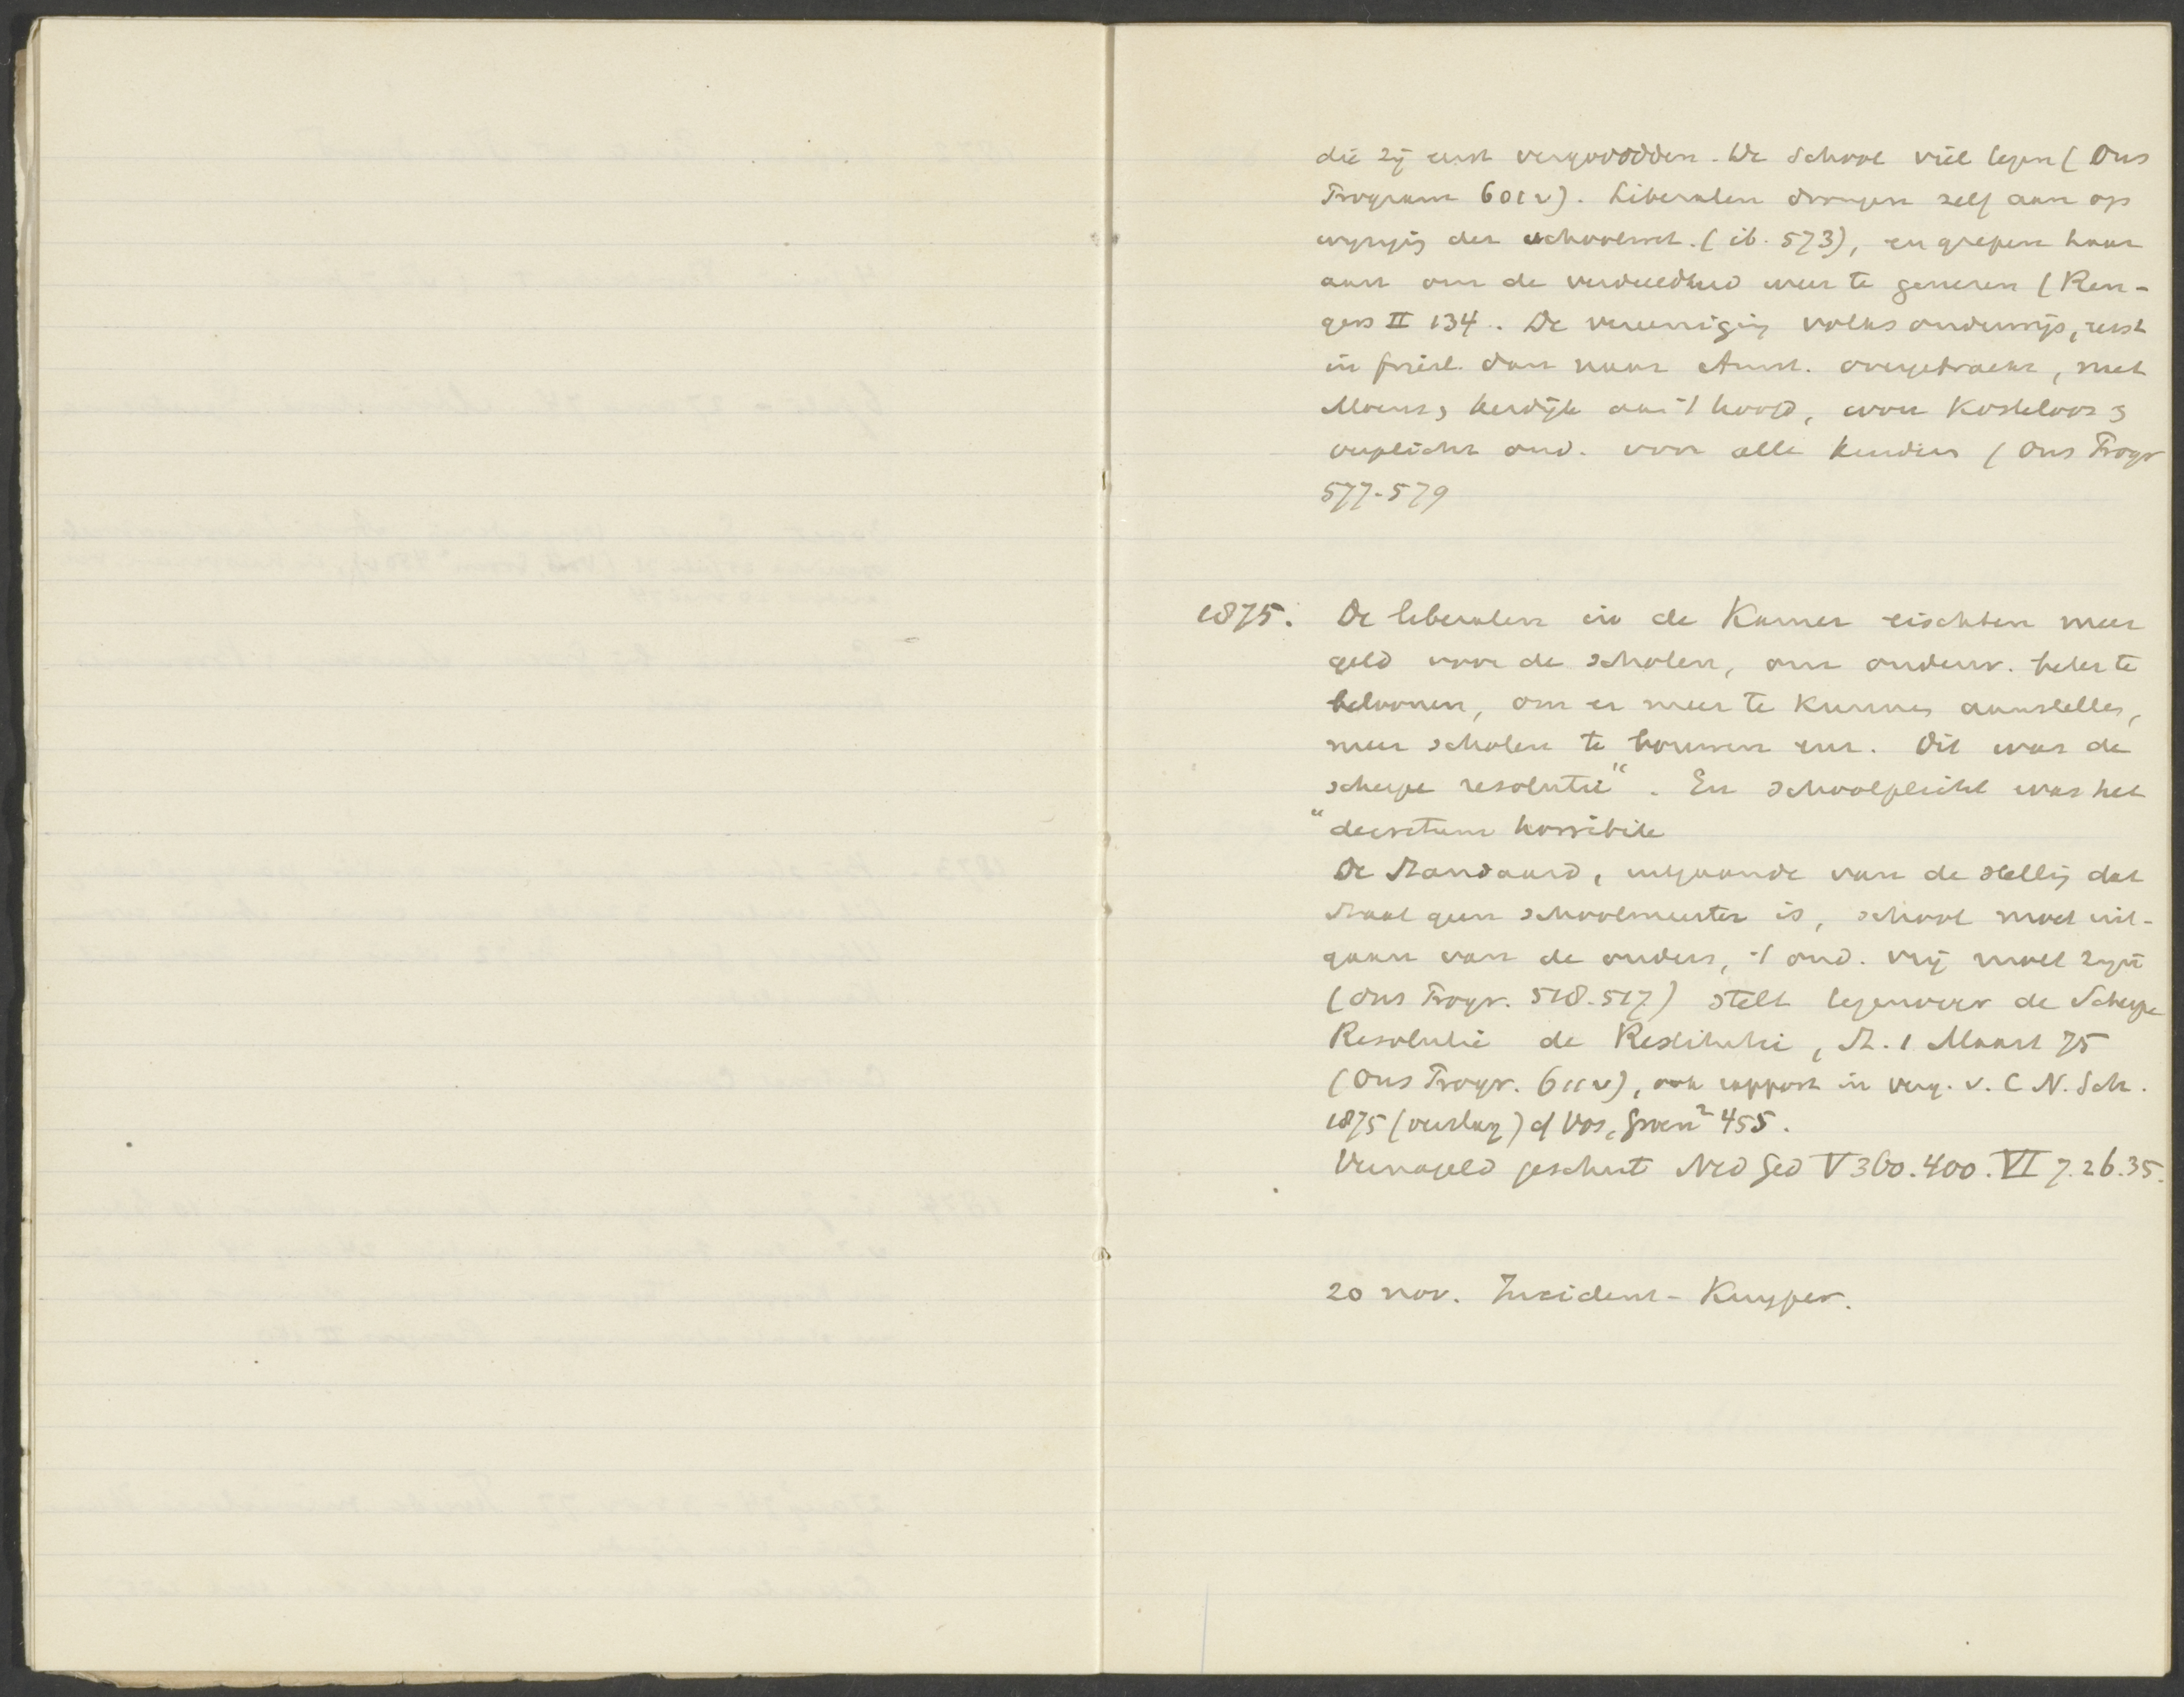 die zij eerst vergoodden. De school viel tegen (Ons
Program 601 v). Liberalen drongen zelf aan op
wijzig der schoolwet. (ib. 573), en grepen haar
aan om de verdeeldheid weer te genezen (Ren-
gers II 134. De vereeniging volksonderwijs, eerst
in Friesl. dan naar Amst. overgebracht, met
Moens, Kerdijk aan 't hoofd, wou Kosteloos
verplicht ond. voor alle kinders (Ons Progr
577-579
1875. De liberalen in de Kamer eischten meer
geld voor de scholen, om onderw. beter te
beloonen, om er meer te kunnen aanstellen,
meer scholen te bouwen enz. Dit was de
scherpe resolutie". En schoolplicht was het
"decretum horribile
De Standaard, uitgaande van de stelling dat
staat geen schoolmeester is, school moet uit-
gaan van de ouders, 't ond. vrij moet zijn
(Ons Progr. 518.517) stelt tegenover de Scherpe
Resolutie de Restitutie, St. 1 Maart 75
(Ons Progr. 611 v), ook rapport in verg. v. C N. Sch.
1875 (verslag) cf Vos, Groen² 455.
geschut Ned Ged V 360.400. VI 7.26.35.
20 nov. Incident-Kuyper.